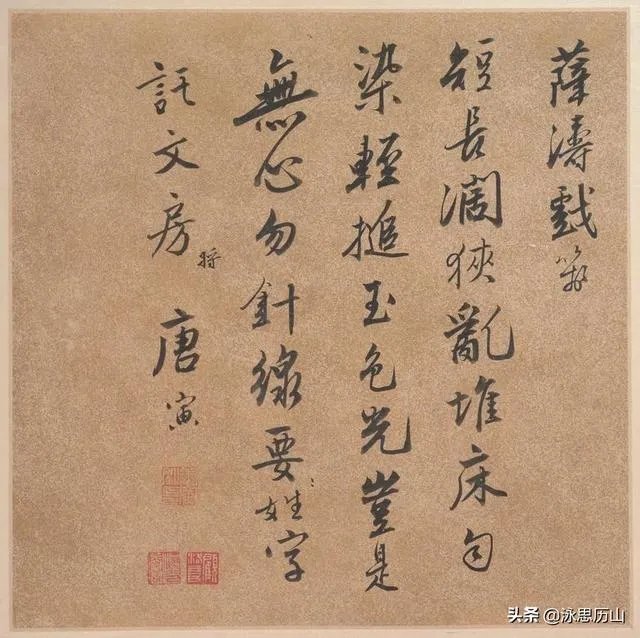 薛濤戲箋
短長闊狹亂堆床勻
染輕搥玉色光豈是
無心勿針線要姓字
託文房將 唐寅
头条 @泳思历山